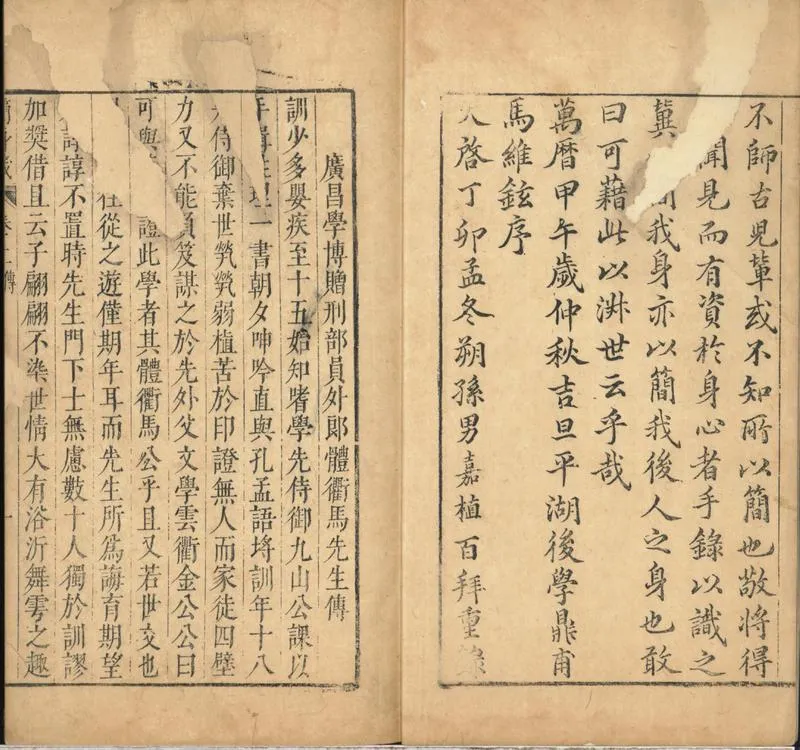 不師古兒輩或不知所以簡也敬將得
聞見而有資於身心者手錄以識之
冀 簡我身亦以簡我後人之身也敢
曰可藉此以淑世云乎哉
萬曆甲午歲仲秋吉旦平湖後學鼎甫
馬維鉉序
天啓丁卯孟冬朔孫男嘉植百拜重錄
廣昌學博贈刑部員外郎體衢馬先生傳
訓少多嬰疾至十五始知嗜學先侍御九山公課以
手輯性理一書朝夕呻吟直與孔孟語埒訓年十八
侍御棄世煢煢弱植苦於印證無人而家徒四壁
力又不能負笈謀之於先外父文學雲衢金公公曰
可與 證此學者其體衢馬公乎且又若世交也
往從之遊僅期年耳而先生所爲誨育期望
諄不置時先生門下士無慮數十人獨於訓謬
加獎借且云子翩翩不染世情大有浴沂舞雩之趣
卷上傳 一